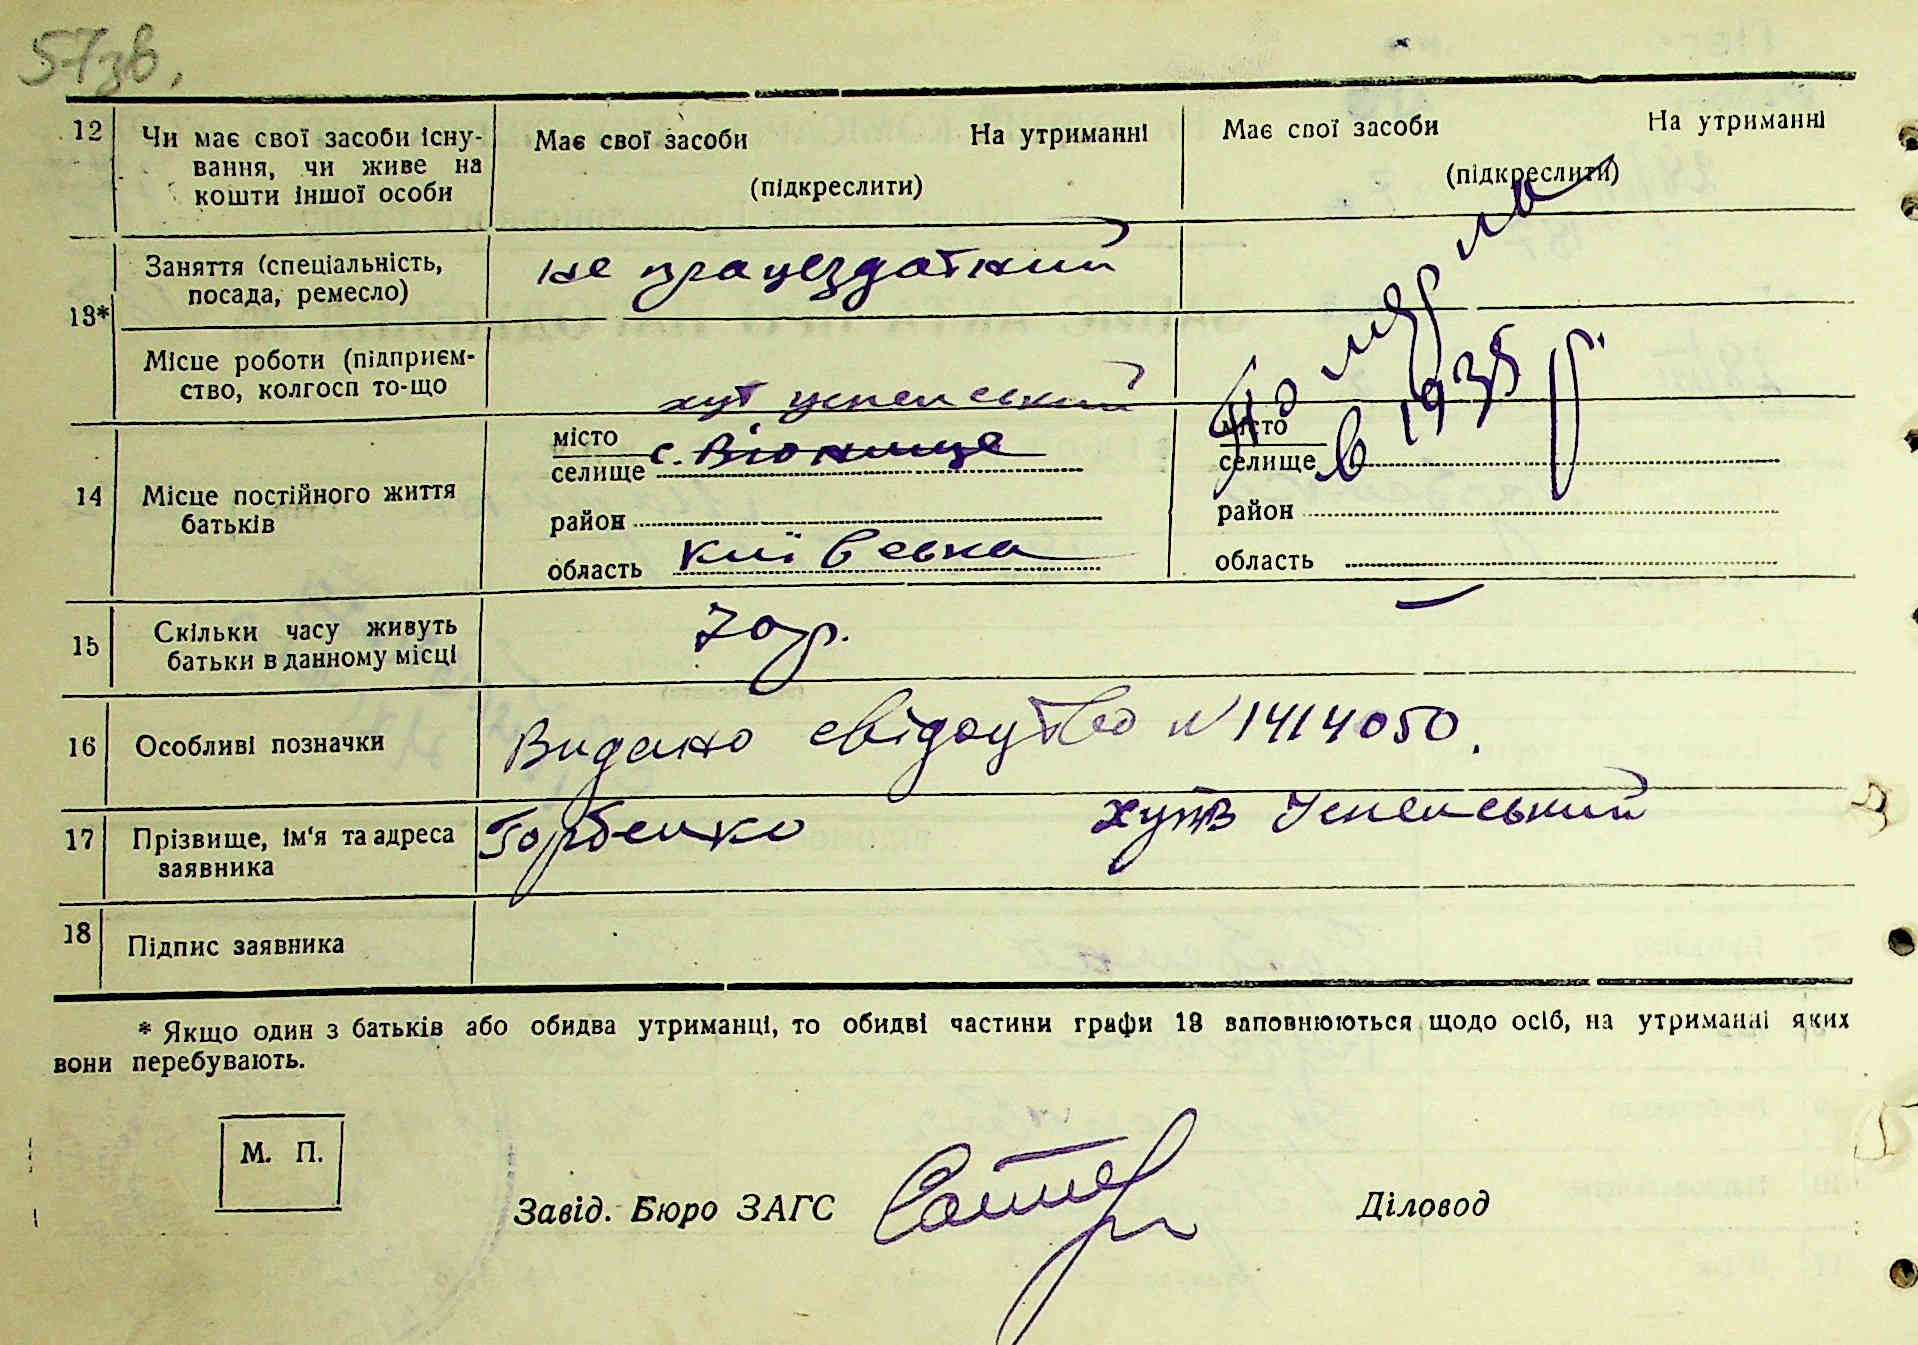 57зв.
12 Чи має свої засоби існу- Має свої засоби На утриманні Має свої засоби На утриманні
вання, чи живе на
кошти іншої особи (підкреслити) (підкреслити)
13* Заняття (спеціальність, не працездатний
посада, ремесло)
Місце роботи (підприєм-
ство, колгосп то-що
хут успенський
14 Місце постійного життя місто місто
батьків селище с. селище
район район
область київська область
в 1935 р.
15 Скільки часу живуть 7 –
батьки в данному місці
16 Особливі позначки Видано свідоцтво N 1414050.
17 Прізвище, ім'я та адреса Горбенко хутв Успенський
заявника
18 Підпис заявника
* Якщо один з батьків або обидва утриманці, то обидві частини графи 13 заповнюються щодо осіб, на утриманні яких
вони перебувають.
М. П.
Завід. Бюро ЗАГС Діловод